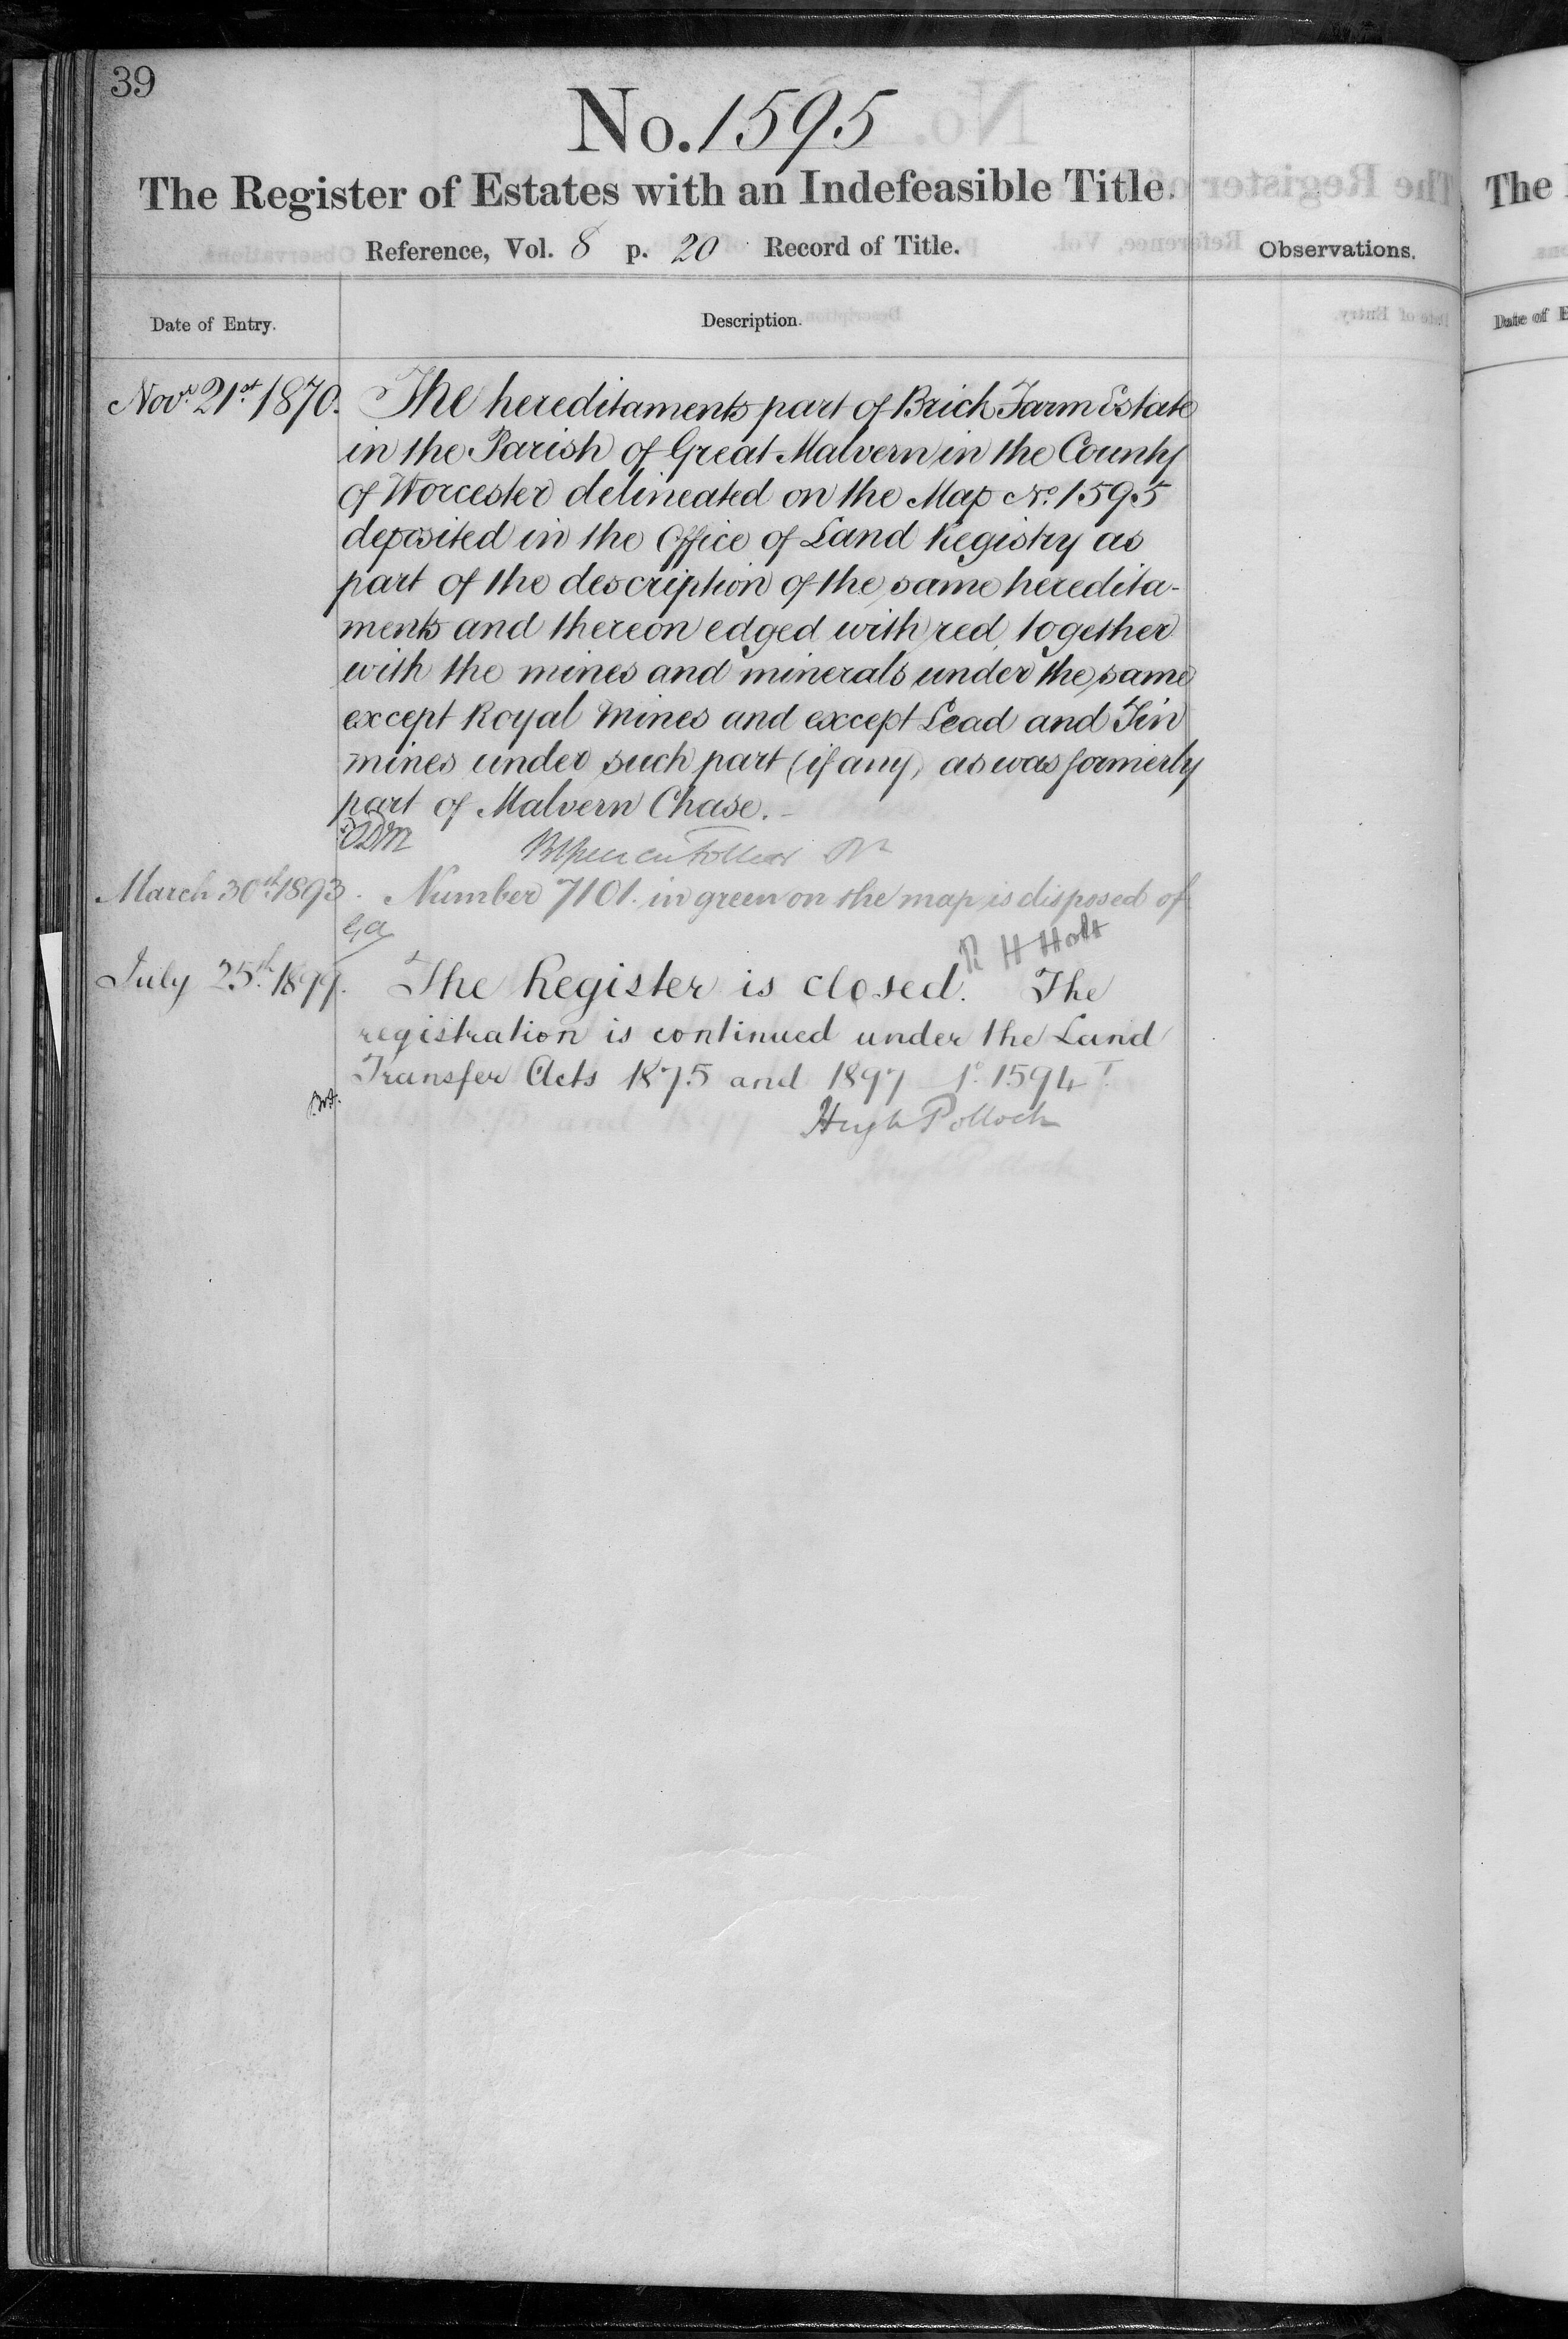 39
No. 1595
The Register of Estates with an Indefeasible Title.
Reference, Vol. 8 p. 20 Record of Title.
Observations.
Date of Entry.
Description.
Novr. 21st 1870. The hereditaments part of Brick Farm Estate
in the Parish of Great Malvern in the County
of Worcester delineated on the Map No. 1595
deposited in the Office of Land Registry as
part of the description of the same heredita-
ments and thereon edged with red, together
with the mines and minerals under the same
except Royal Mines and except Lead and Tin
mines under such part (if any) as was formerly
part of Malvern Chase.
March 30th 1893. Number 7101. in green on the map is disposed of
R H Holt
July 25th 1899. The Register is closed. The
registration is continued under the Land
Transfer Acts 1875 and 1897 1594
Hugh Pollock
The
Date of E